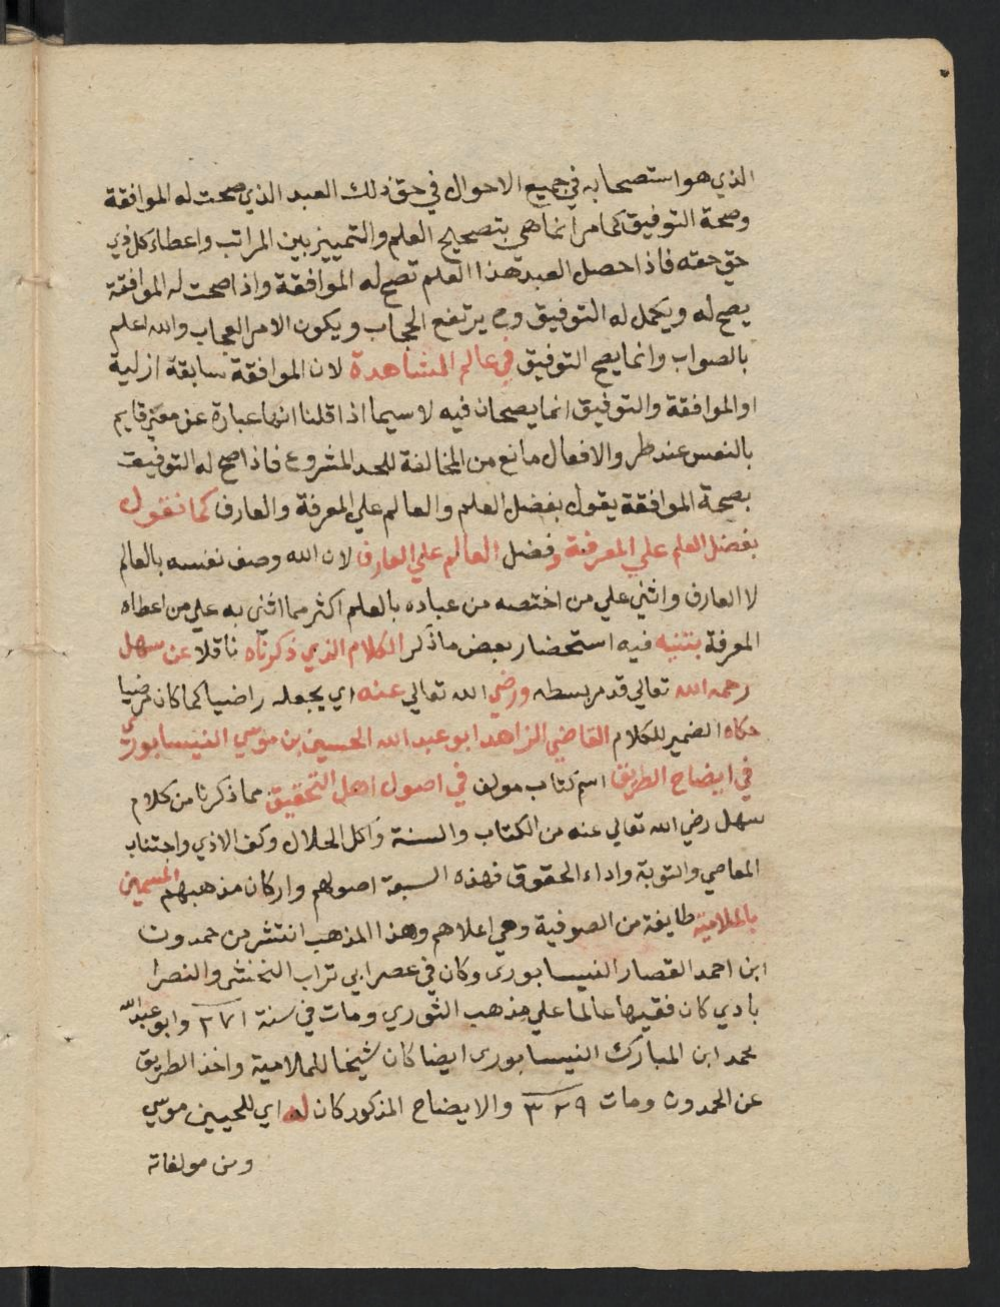 الذي هو استصحابه في جميع الاحوال في حق ذلك العبد الذي صحت له الموافقة
وصحة التوفيق كما مر انما هي بتصحيح العلم والتمييز بين المراتب واعطاء كل ذي
حق حقه فاذا حصل العبد هذا العلم تصح له الموافقة واذا صحت له الموافقة
يصح له ويكمل له التوفيق وح يرتفع الحجاب ويكون الامر العجاب والله اعلم
بالصواب وانما يصح التوفيق في عالم المشاهدة لان الموافقة سابقة ازلية
او الموافقة والتوفيق انما يصحان فيه لا سيما اذا قلنا انها عبارة عن معنى قايم
بالنفس عند طر والافعال مانع من المخالفة للحد المشروع فاذا صح له التوفيق
بصحة الموافقة يقول بفضل العلم والعالم علي المعرفة والعارف كما نقول
بفضل العلم علي المعرفة وفضل العالم علي العارف لان الله وصف نفسه بالعالم
لا العارف واثني علي من اختصه من عباده بالعلم اكثر مما اثنى به علي من اعطاه
المعرفة بتنبيه فيه استحضار بعض ما ذكر الكلام الذي ذكرناه ناقلا عن سهل
رحمه الله تعالي قد مر بسطه ورضي الله تعالي عنه اي يجعله راضيا كما كان مرضيا
حكاه الضمير للكلام القاضي الزاهد ابو عبد الله الحسين بن موسي النيسابوري
في ايضاح الطريق اسم كتاب مولف في اصول اهل التحقيق مما ذكرنا من كلام
سهل رضي الله تعالي عنه من الكتاب والسنة واكل الحلال وكف الاذي واجتناب
المعاصي والتوبة واداء الحقوق فهذه السبعة اصولهم واركان مذهبهم المسمين
بالملامية طايفة من الصوفية وهي اعلاهم وهذا المذهب انتشر من حمدون
ابن احمد القصار النيسابورى وكان في عصر ابي تراب النخشى والنصرا
بادي كان فقيها عالما علي مذهب الثوري ومات في سنة ٢٧١ وابو عبد الله
محمد ابن المبارك النيسابورى ايضا كان شيخا للملامية واخذ الطريق
عن الحمدون ومات ٣٢٩ والايضاح المذكور كان له اي للحسين موسي
ومن مولفاته